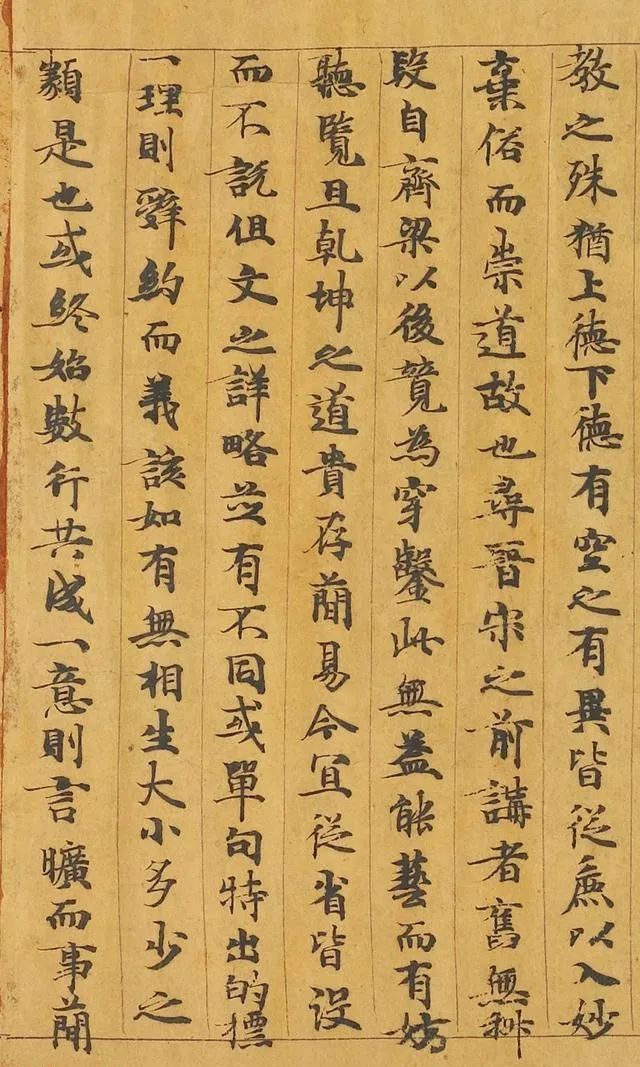 教之殊猶上德下德有空之有異皆從麁以入妙
棄俗而崇道故也尋晉宋之前講者舊無科
段自齊梁以後競為穿鑿此無益能藝而有妨
聽覽且乾坤之道貴存蕳易今宜從省皆沒
而不說但文之詳略並有不同或單句特出的標
一理則辭約而義該如有無相生大小多少之
類是也或終始數行共成一意則言曠而事蕳